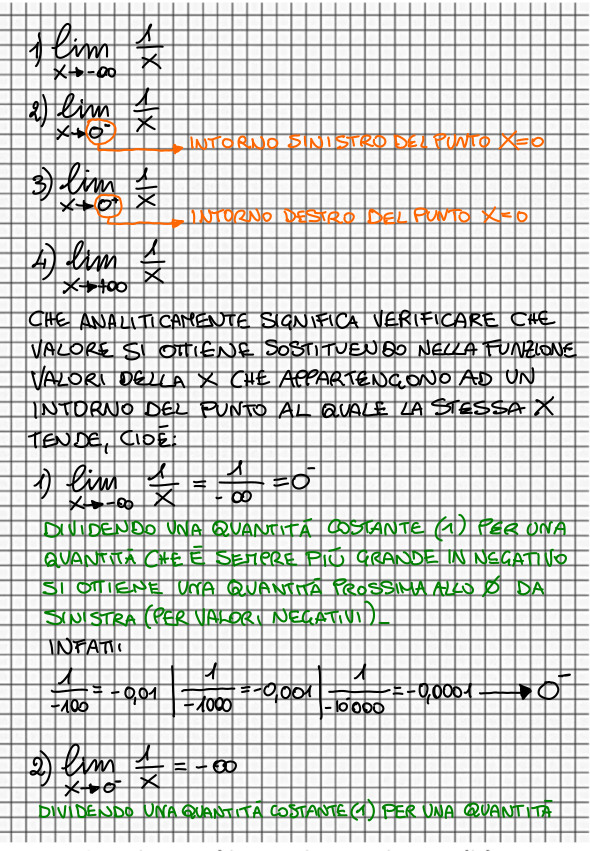 1) lim 1/x
x→-∞
2) lim 1/x
x→0⁻
INTORNO SINISTRO DEL PUNTO X=0
3) lim 1/x
x→0⁺
INTORNO DESTRO DEL PUNTO X=0
4) lim 1/x
x→+∞
CHE ANALITICAMENTE SIGNIFICA VERIFICARE CHE
VALORE SI OTTIENE SOSTITUENDO NELLA FUNZIONE
VALORI DELLA X CHE APPARTENGONO AD UN
INTORNO DEL PUNTO AL QUALE LA STESSA X
TENDE, CIOÈ:
1) lim 1/x = 1/-∞ = 0⁻
x→-∞
DIVIDENDO UNA QUANTITÀ COSTANTE (1) PER UNA
QUANTITÀ CHE È SEMPRE PIÙ GRANDE IN NEGATIVO
SI OTTIENE UNA QUANTITÀ PROSSIMA ALLO Ø DA
SINISTRA (PER VALORI NEGATIVI)_
INFATTI
1/-100 = -0,01 | 1/-1000 = -0,001 | 1/-10'000 = -0,0001 → 0⁻
2) lim 1/x = -∞
x→0⁻
DIVIDENDO UNA QUANTITÀ COSTANTE (1) PER UNA QUANTITÀ